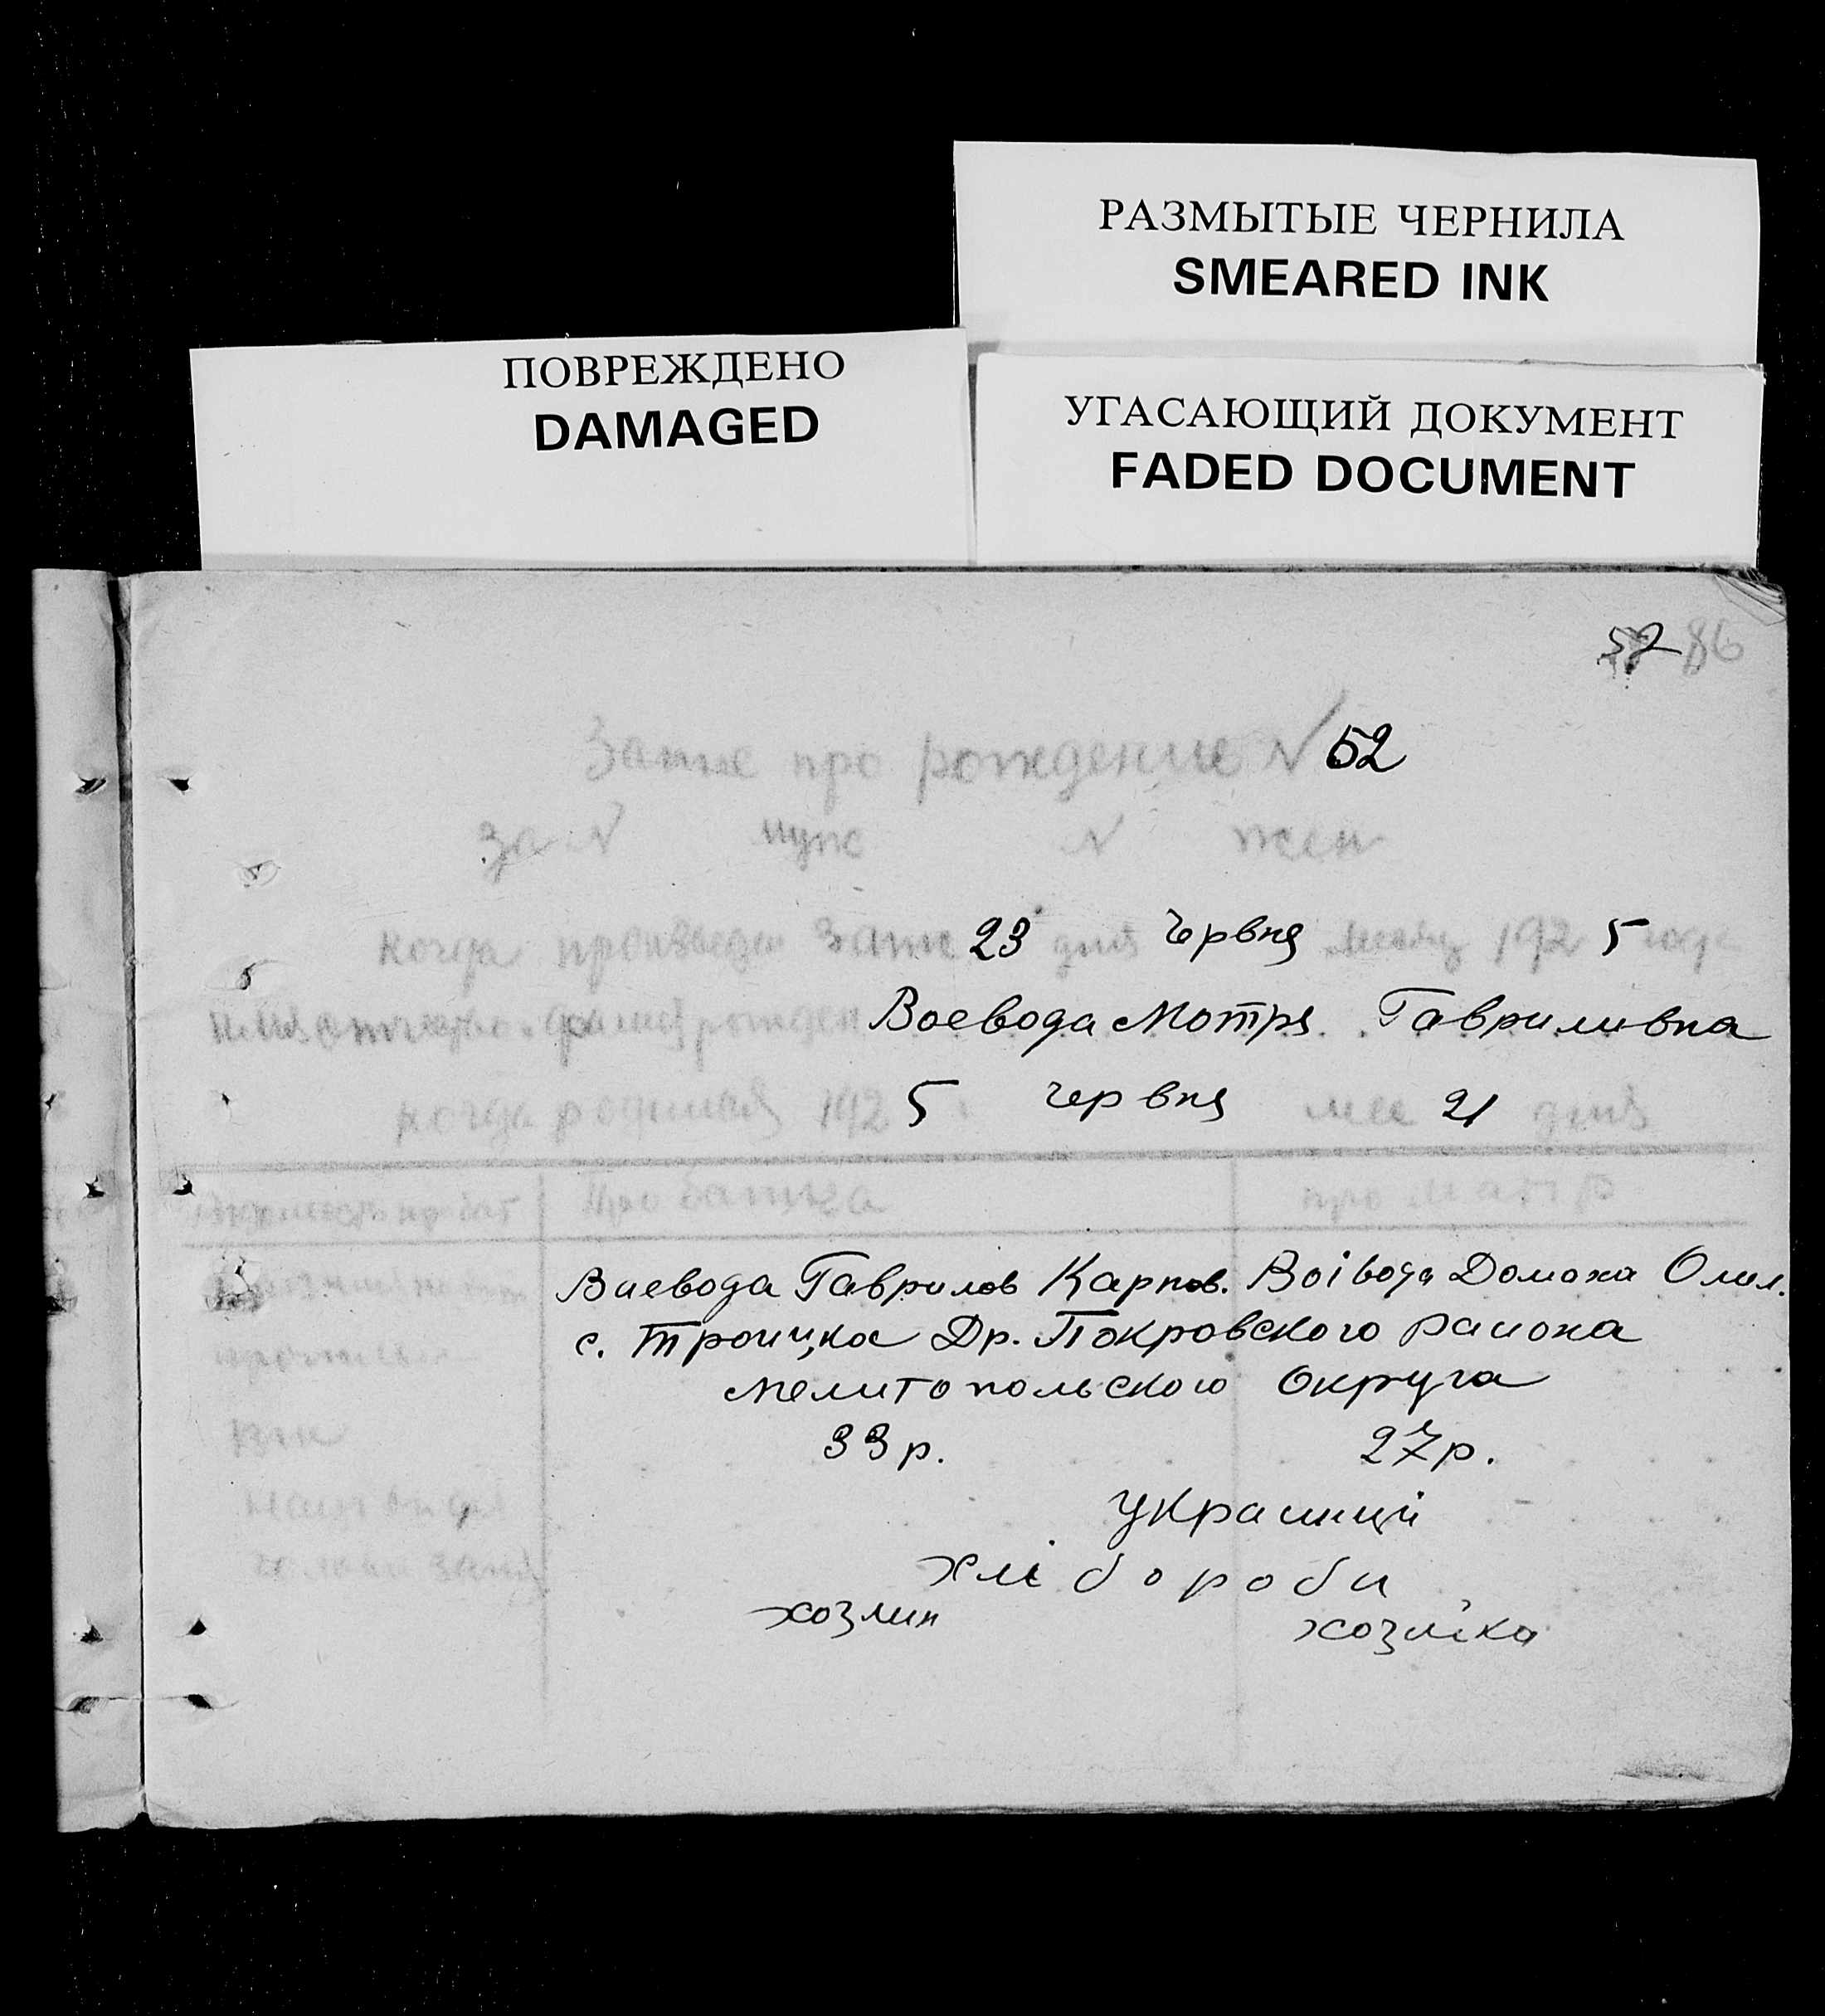 РАЗМЫТЫЕ ЧЕРНИЛА
SMEARED INK
ПОВРЕЖДЕНО
DAMAGED
УГАСАЮЩИЙ ДОКУМЕНТ
FADED DOCUMENT
52 86
Запис про рождение № 52
за № муж № жен
Когда произведен запис 23 дня червня месяц 1925 года
Воевода Мотря Гавриливна
когда родился 1925 червня мес 21 дня
Про батька про матір
Воевода Гаврилов Карпов. Воівода Домаха Омел.
с. Троицка Др. Покровского района
Мелитопольского Округа
Вік 33 р. 27 р.
Украинці
хлібороби
хозяин хозяйка